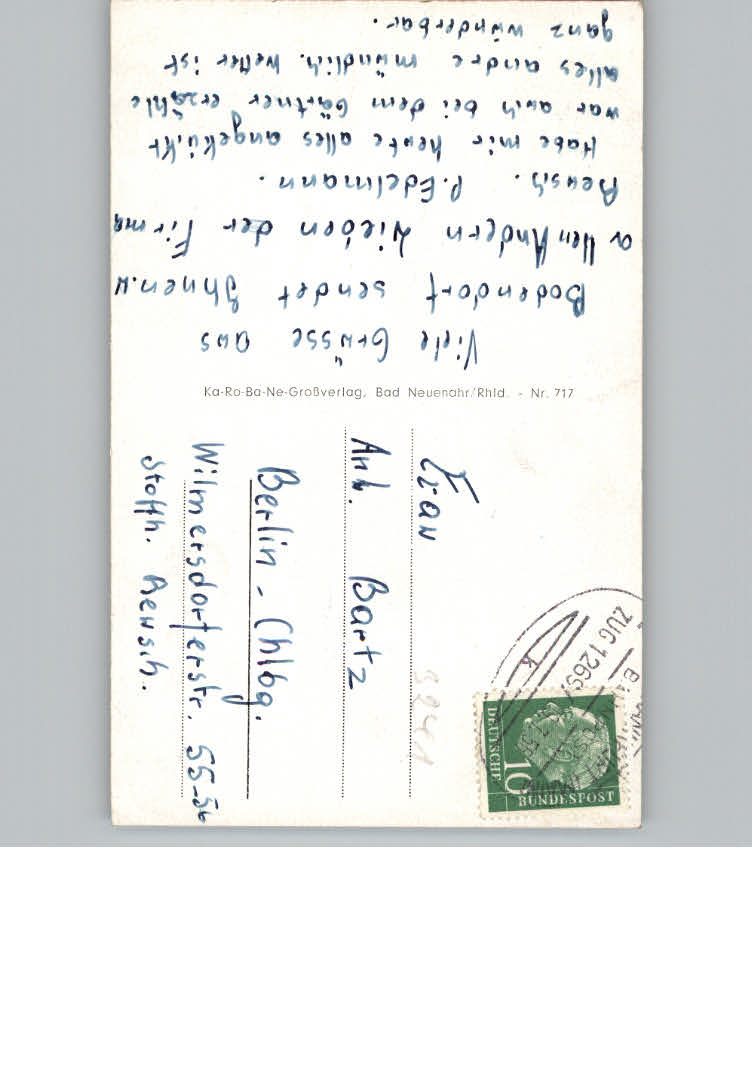 Viele Grüsse aus
Bodendorf sendet Ihnen u.
allen Andern Lieben der Firma
Rewsch. P. Edelmann.
Habe mir heute alles angekükt
war auch bei dem Gärtner erzähle
alles andre mündlich. Wetter ist
ganz wünderbar.
Ka-Ro-Ba-Ne-Großverlag, Bad Neuenahr/Rhld. - Nr. 717
Frau
Anh. Bartz
Berlin - Chlbg.
Wilmersdorferstr. 55-56
Stoffh. Rewsch.
ZUG 1269
K
DEUTSCHE
10
BUNDESPOST